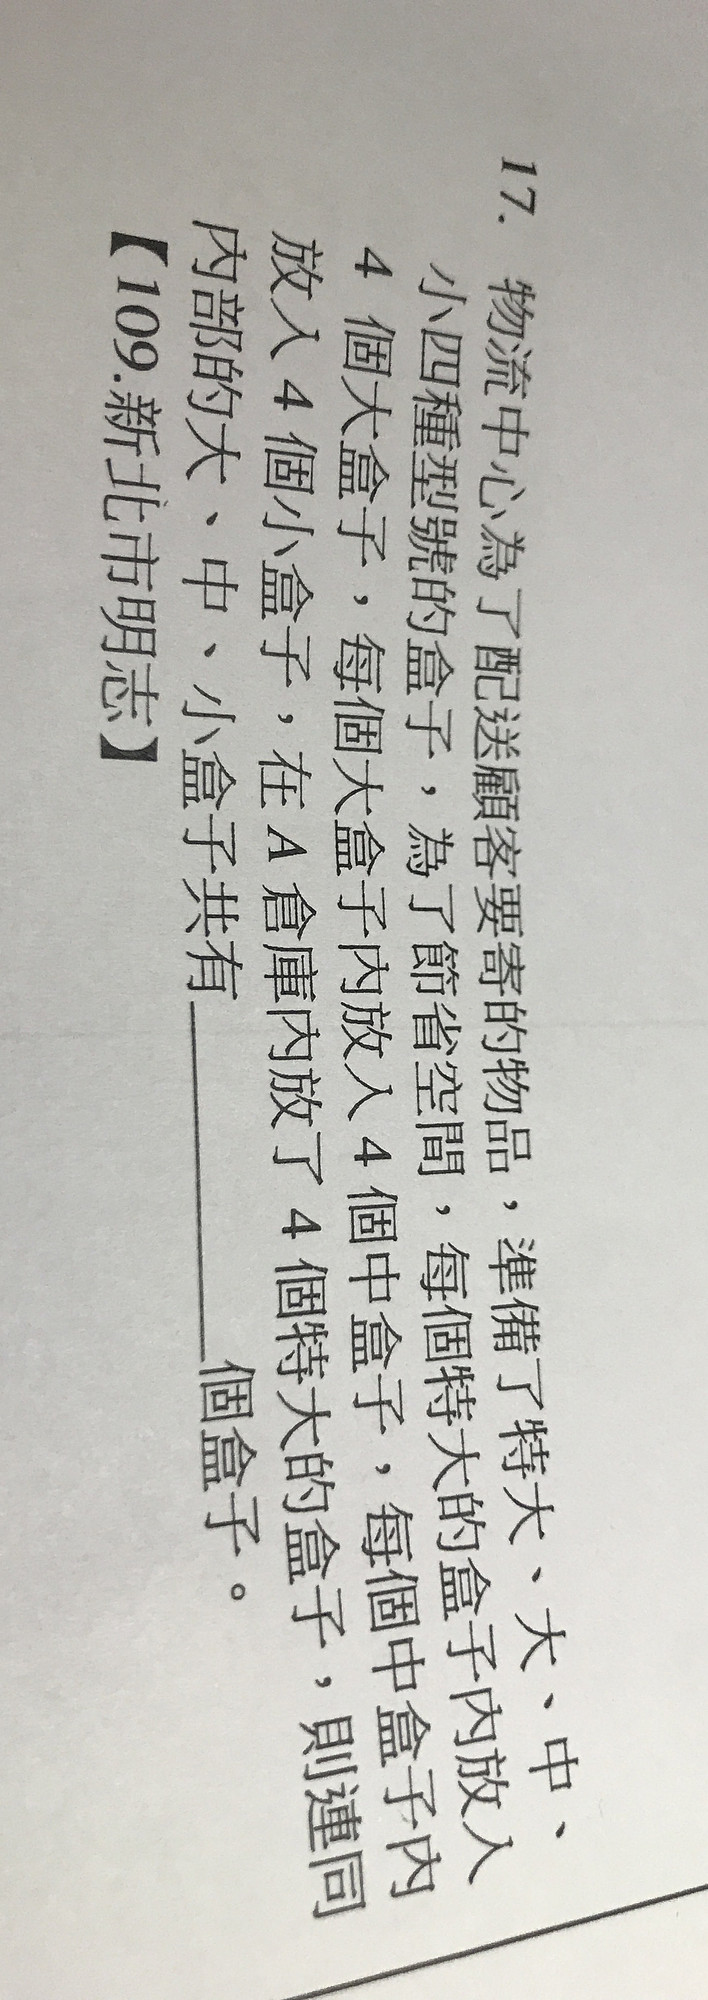 17. 物流中心為了配送顧客要寄的物品，準備了特大、大、中、
小四種型號的盒子，為了節省空間，每個特大的盒子內放入
4 個大盒子，每個大盒子內放入 4 個中盒子，每個中盒子內
放入 4 個小盒子，在 A 倉庫內放了 4 個特大的盒子，則連同
內部的大、中、小盒子共有________個盒子。
【109.新北市明志】